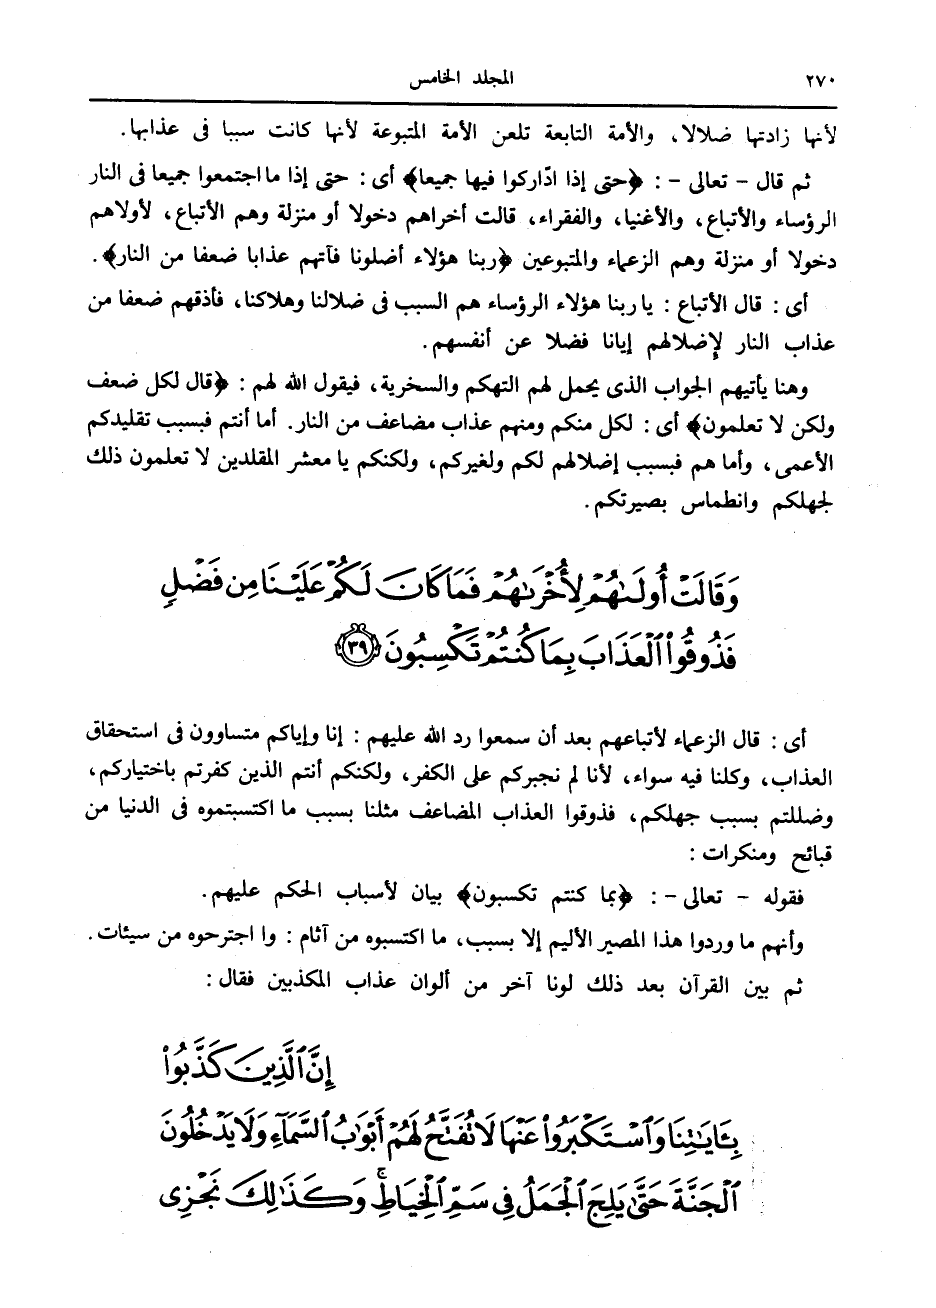 ٢٧٠ المجلد الخامس
لأنها زادتها ضلالا، والأمة التابعة تلعن الأمة المتبوعة لأنها كانت سببا فى عذابها.
ثم قال - تعالى - : ﴿حتى إذا ادّاركوا فيها جميعا﴾ أى : حتى إذا ما اجتمعوا جميعا فى النار
الرؤساء والأتباع، والأغنيا، والفقراء، قالت أخراهم دخولا أو منزلة وهم الأتباع، لأولاهم
دخولا أو منزلة وهم الزعماء والمتبوعين ﴿ربنا هؤلاء أضلونا فآتهم عذابا ضعفا من النار﴾.
أى : قال الأتباع : يا ربنا هؤلاء الرؤساء هم السبب فى ضلالنا وهلاكنا، فأذقهم ضعفا من
عذاب النار لإضلالهم إيانا فضلا عن أنفسهم.
وهنا يأتيهم الجواب الذى يحمل لهم التهكم والسخرية، فيقول الله لهم : ﴿قال لكل ضعف
ولكن لا تعلمون﴾ أى : لكل منكم ومنهم عذاب مضاعف من النار. أما أنتم فبسبب تقليدكم
الأعمى، وأما هم فبسبب إضلالهم لكم ولغيركم، ولكنكم يا معشر المقلدين لا تعلمون ذلك
لجهلكم وانطماس بصيرتكم.
وَقَالَتْ أُولَىٰهُمْ لِأُخْرَىٰهُمْ فَمَا كَانَ لَكُمْ عَلَيْنَا مِن فَضْلٍ
فَذُوقُوا۟ ٱلْعَذَابَ بِمَا كُنتُمْ تَكْسِبُونَ ٣٩
أى : قال الزعماء لأتباعهم بعد أن سمعوا رد الله عليهم : إنا وإياكم متساوون فى استحقاق
العذاب، وكلنا فيه سواء، لأنا لم نجبركم على الكفر، ولكنكم أنتم الذين كفرتم باختياركم،
وضللتم بسبب جهلكم، فذوقوا العذاب المضاعف مثلنا بسبب ما اكتسبتموه فى الدنيا من
قبائح ومنكرات :
فقوله - تعالى - : ﴿بما كنتم تكسبون﴾ بيان لأسباب الحكم عليهم.
وأنهم ما وردوا هذا المصير الأليم إلا بسبب، ما اكتسبوه من آثام : وا اجترحوه من سيئات.
ثم بين القرآن بعد ذلك لونا آخر من ألوان عذاب المكذبين فقال :
إِنَّ ٱلَّذِينَ كَذَّبُوا۟
بِـَٔايَـٰتِنَا وَٱسْتَكْبَرُوا۟ عَنْهَا لَا تُفَتَّحُ لَهُمْ أَبْوَٰبُ ٱلسَّمَآءِ وَلَا يَدْخُلُونَ
ٱلْجَنَّةَ حَتَّىٰ يَلِجَ ٱلْجَمَلُ فِى سَمِّ ٱلْخِيَاطِ ۚ وَكَذَٰلِكَ نَجْزِى